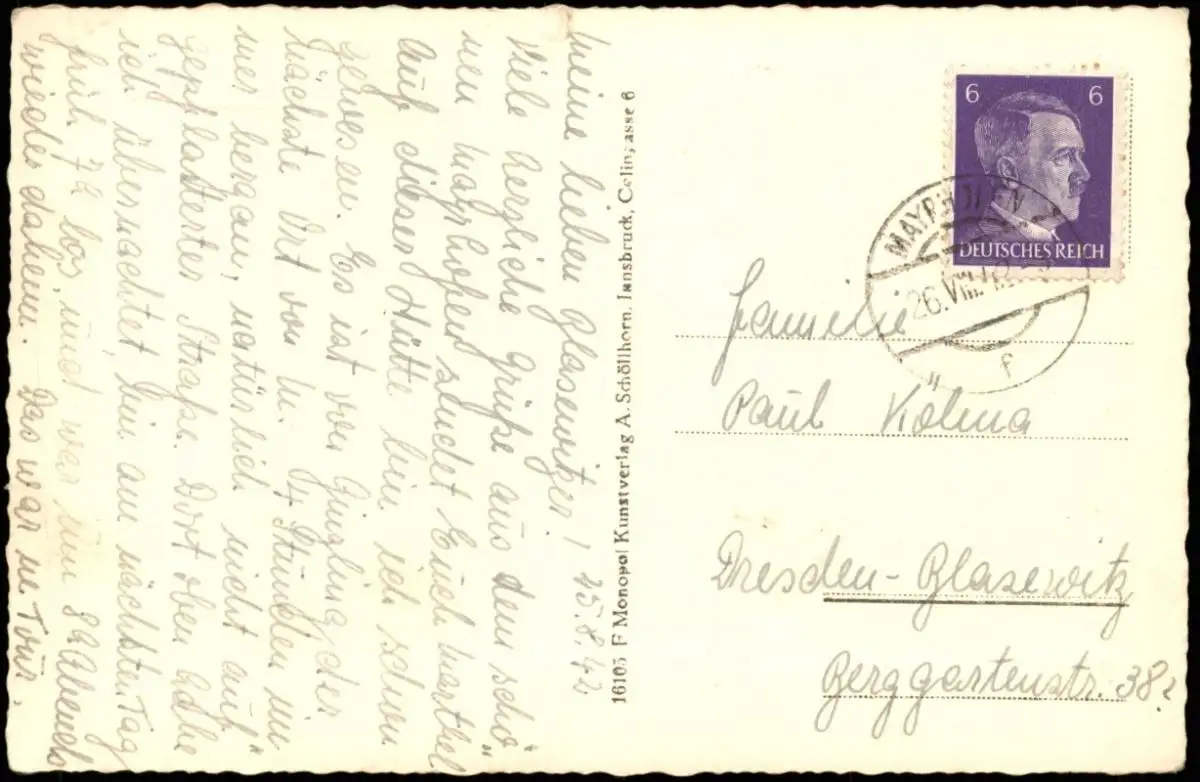 Meine lieben Glasewitzer! 25.8.42
Viele herzliche Grüße aus dem schö-
nen Mayrhofen sendet Euch Marthel
Auf dieser Hütte bin ich schon
gewesen. Es ist von Ginzling der
nächste Ort von M. 4 Stunden im-
mer bergan, natürlich nicht auf
gepflasterter Straße. Dort oben habe
ich übernachtet, bin am nächsten Tag
früh 7h los, und war um 8h Abends
wieder daheim. Das war ne Tour.
16103 F Monopol Kunstverlag A. Schöllhorn, Innsbruck, Colingasse 6
6 6
DEUTSCHES REICH
MAYRHOFEN
26.VIII.42
f
Familie
Paul Kölma
Dresden-Blasewitz
Berggartenstr. 38